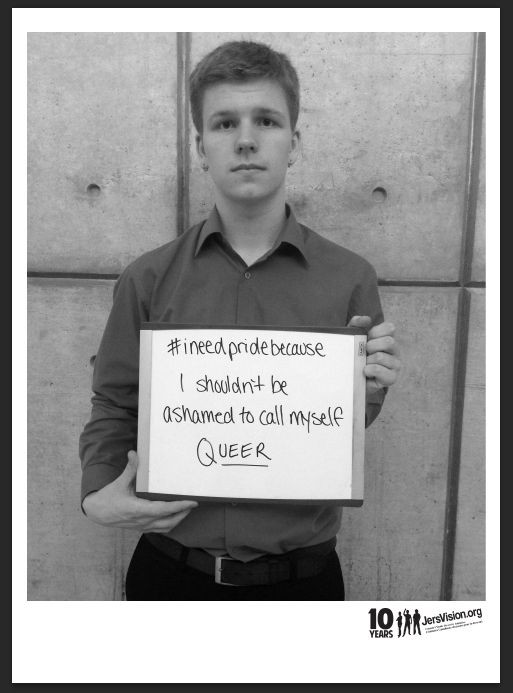 #ineedpridebecause
I shouldn't be
ashamed to call myself
QUEER
10 YEARS
JersVision.org